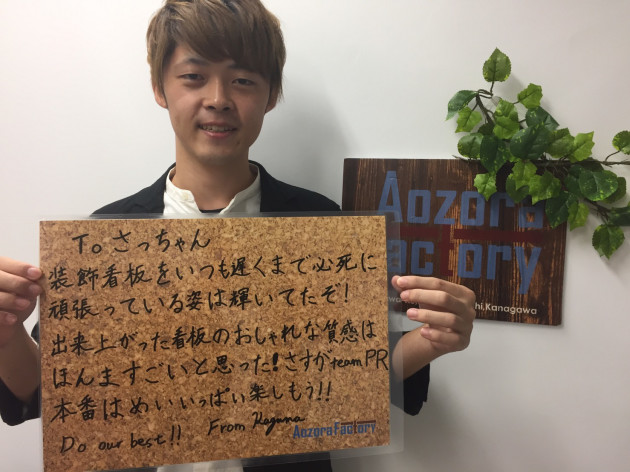 To さっちゃん
装飾看板をいつも遅くまで必死に
頑張っている姿は輝いてたぞ！
出来上がった看板のおしゃれな質感は
ほんますごいと思った！さすがteam PR
本番はめいいっぱい楽しもう!!
Do our best!! From Kazuma
Aozora Factory
Aozora
Fac ory
hi.Kanagawa